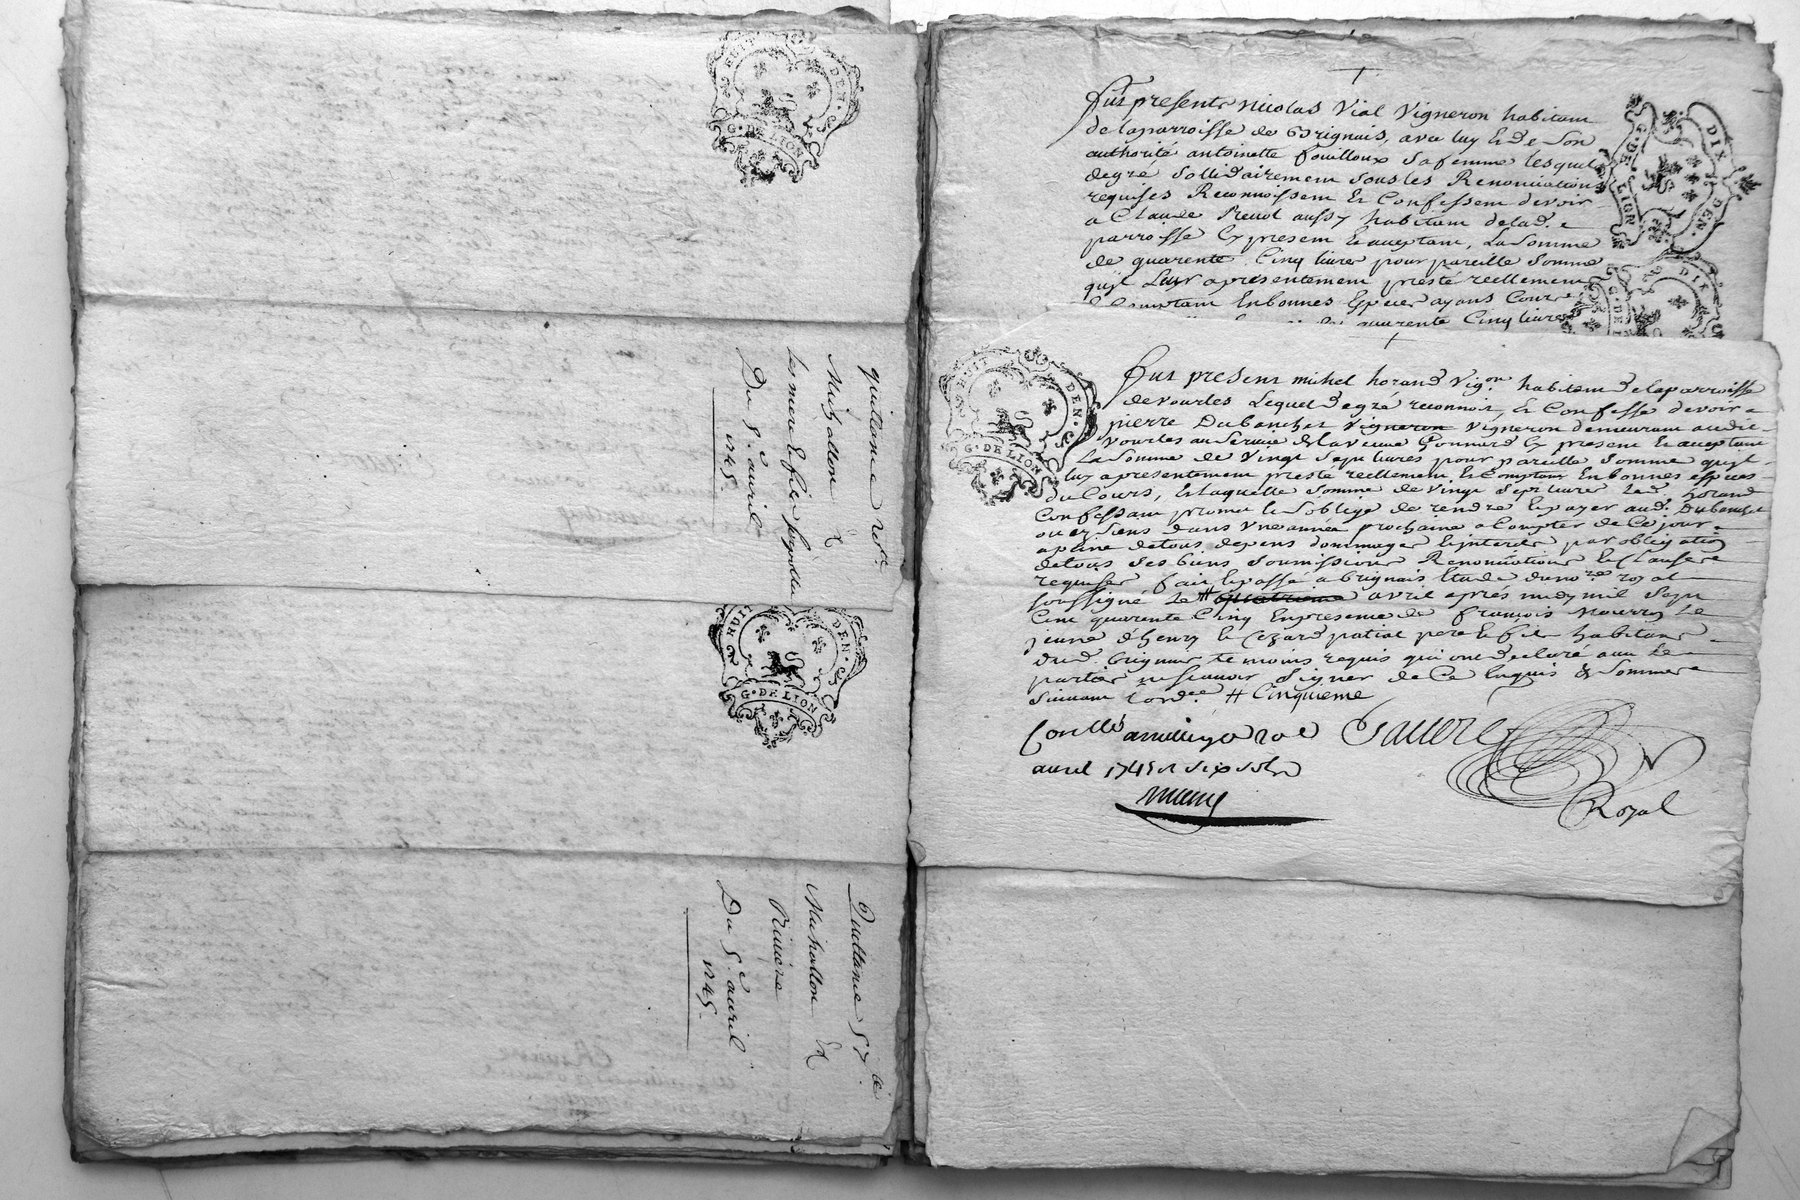 HUIT DEN.
G. DE LION
quittance
Michallon &
les mere & fils
Du 5e avril
1745.
HUIT DEN.
G. DE LION
Quittance
Michallon &
Riviere
Du 5e avril
1745.
Fut present Nicolas Vial Vigneron habitant
de la parroisse de Brignais, avec luy & de Son
authorité antoinette fouilloux Sa femme lesquels
de gré Sollidairement Sous les Renonciations
requises Reconnoissent & Confessent devoir
a Claude aussy habitant de lad.e
parroisse Cy present & aceptant, La Somme
de quarente Cinq livres pour pareille Somme
qu'jl Leur a presentement presté reellement
& Comptant En bonnes Especes ayant Cours
quarente Cinq livres
DIX DEN.
G. DE LION
DIX
G. DE L
HUIT DEN.
G. DE LION
Fut present michel horand Vig.on habitant de la parroisse
de vourles Lequel de gré reconnoit, & Confesse devoir a
pierre Dubanchet Vigneron Vigneron demeurant audit
vourles au Service de la veuve Cy present & aceptant
La Somme de Vingt Sept livres pour pareille Somme qu'jl
luy a presentement presté reellement & Comptant En bonnes especes
du Cours, & laquelle Somme de vingt Sept livres led. horand
Confessant promet & S'oblige de rendre & payer aud. Dubanchet
ou es Siens dans Une année prochaine a Compter de Ce jour
a peine de tous depens dommages & interets par obligation
de tous Ses biens Soumissions Renonciations & Clauses
requises fait & passé a Brignais Etude du no.re royal
soussigné Le # quatrieme avril apres midy mil Sept
Cent quarente Cinq En presence de françois Le
jeune d'henry & Cezard patiat pere & fils habitans
dud. Brignais temoins requis qui ont declaré avec les
parties ne Scavoir Signer de Ce Enquis & Sommés
Suivant l'ord.ce # Cinquieme
Con.llé a
avril 1745 R Six Sols
Royal